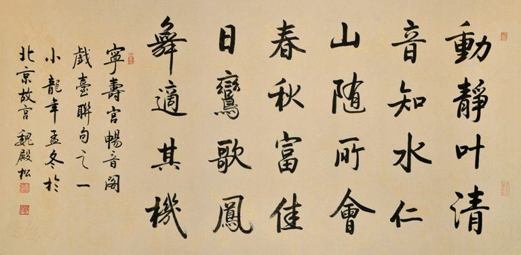 動靜叶清
音知水仁
山随所會
春秋富佳
日鸞歌鳳
舞適其機
寧壽宫暢音閣
戲臺聯句之一
小龍年孟冬於
北京故宫 魏殿松